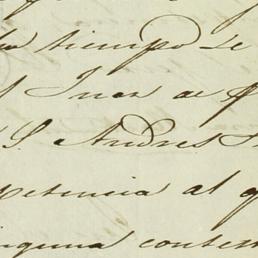 tiempo de
Juez de
S. Andres
petencia al q
inguna contes